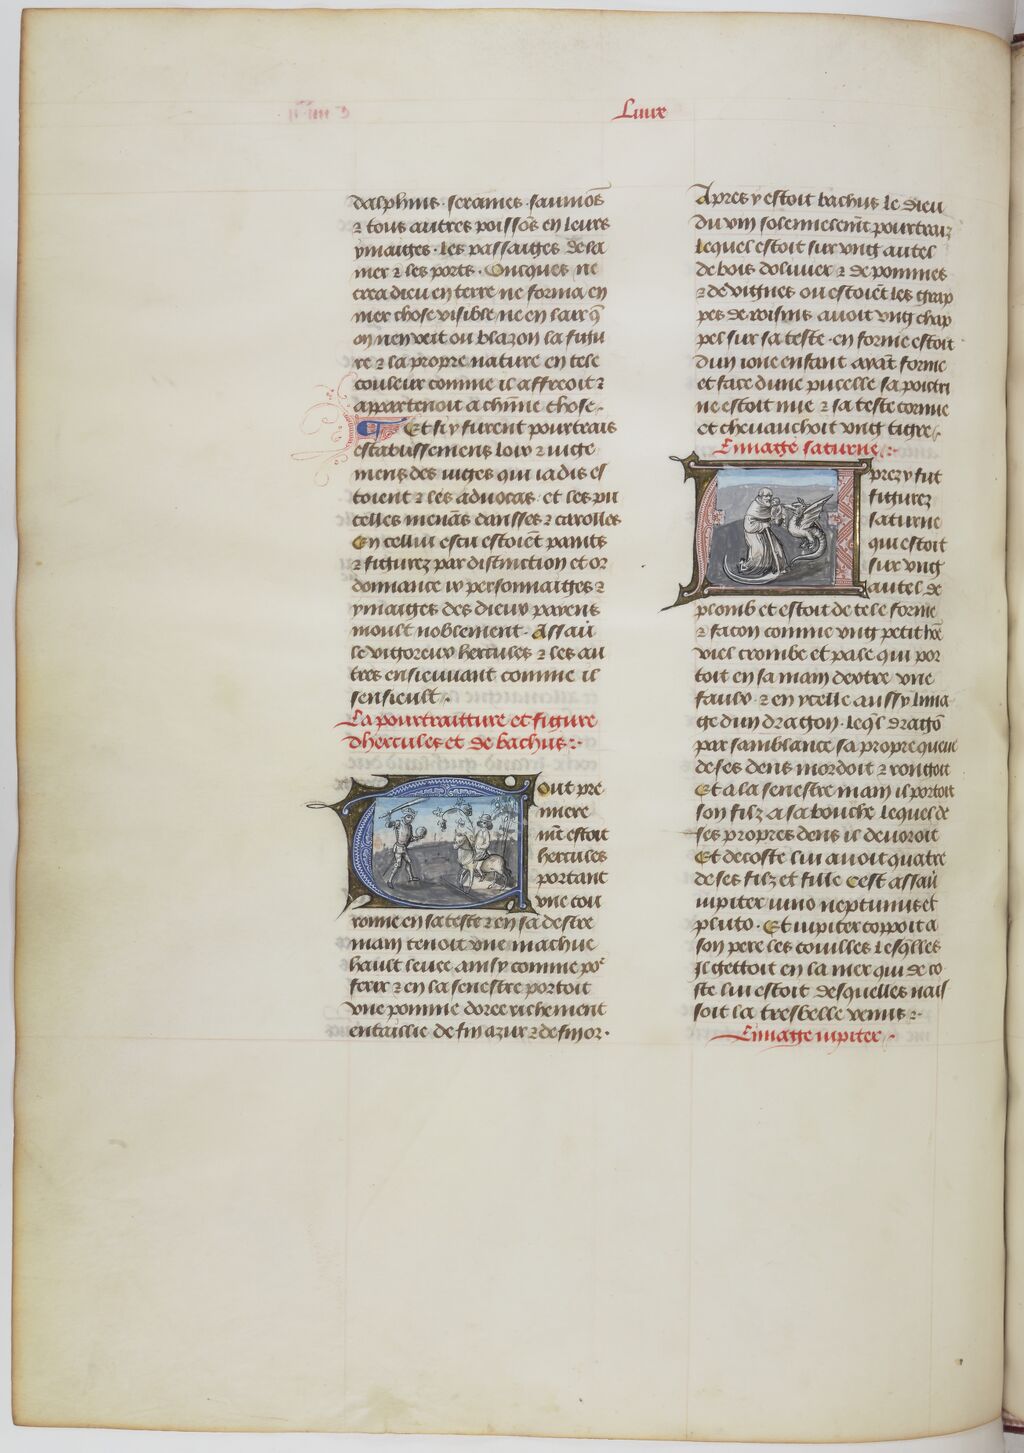 Livre
dalphins. seraines. saumōs
⁊ tous autres poissōs en leurs
ymaiges. les passaiges de la
mer ⁊ les pors. Oncques ne
crea dieu en terre ne forma en
mer chose visible ne en lair q̄
on nen veit ou blazon la figu
re ⁊ la propre nature en tele
couleur comme il affreoit ⁊
appartenoit a chūne chose.
Et si y furent pourtrais
establissemens loix ⁊ iuge
mens des iuges qui iadis es
toient ⁊ les aduocas. et les pu
celles menās dansses ⁊ carolles
En cellui escu estoiēt paints
⁊ figurez par distinction et or
donnance ix personnaiges ⁊
ymaiges des dieux payens
moult noblement. Assau͛
le vigoreux hercules ⁊ les au
tres ensieuuant comme il
sensieult.
La pourtraitture et figure
dhercules et de bachus:.
Tout pre
miere
mēt estoit
hercules
portant
vne cou
ronne en sa teste ⁊ en sa destre
main tenoit vne machue
hault leuee ainsy comme poͬ
ferir ⁊ en la senestre portoit
vne pomme doree richement
entaillie de fin azur ⁊ de fin or.
Apres y estoit bachus le dieu
du vin solennelemēt pourtrait
lequel estoit sur vng autel
de bois doliuier ⁊ de pommes
⁊ de vignes ou estoiēt les grap
pes de roisins auoit vng chap
pel sur sa teste. en forme estoit
dun ione enfant ayāt forme
et face dune pucelle sa poictri
ne estoit nue ⁊ sa teste cornue
et cheuauchoit vng tigre.
Limage saturne:.
Aprez y fut
figurez
saturne
qui estoit
sur vng
autel de
plomb et estoit de tele forme
⁊ facon comme vng petit hōe
viel crombe et pale qui por
toit en sa main dextre vne
faulx. ⁊ en ycelle aussy lima
ge dun dragon. leql̄ dragō
par samblance sa propre queue
de ses dens mordoit ⁊ rongoit
Et a la senestre main il portoit
son filz a sa bouche lequel de
ses propres dens il deuoroit
Et decoste lui auoit quatre
de ses filz et fille Cest assau͛
iupiter iuno neptunus et
pluto. Et iupiter coppoit a
son pere les couilles lesq̄lles
Il gettoit en la mer qui de co
ste lui estoit desquelles nais
soit la tresbelle venus ⁊.
Limage iupiter.